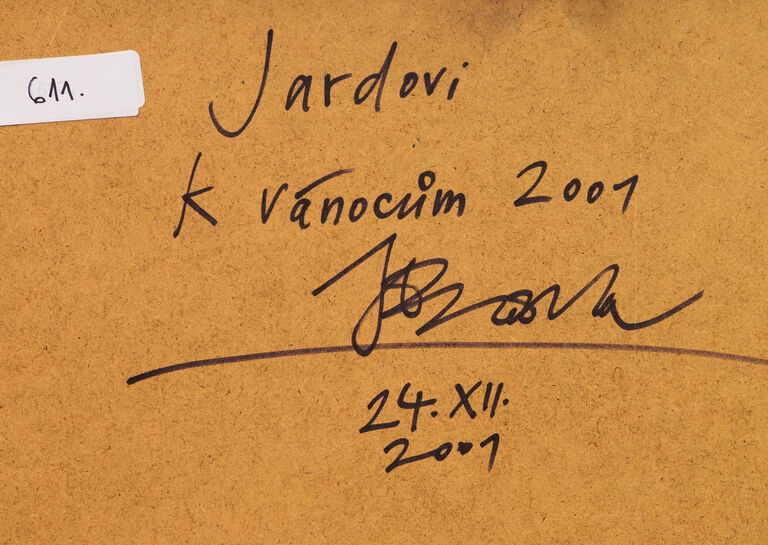 611.
Jardovi
k vánocům 2001
24. XII.
2001